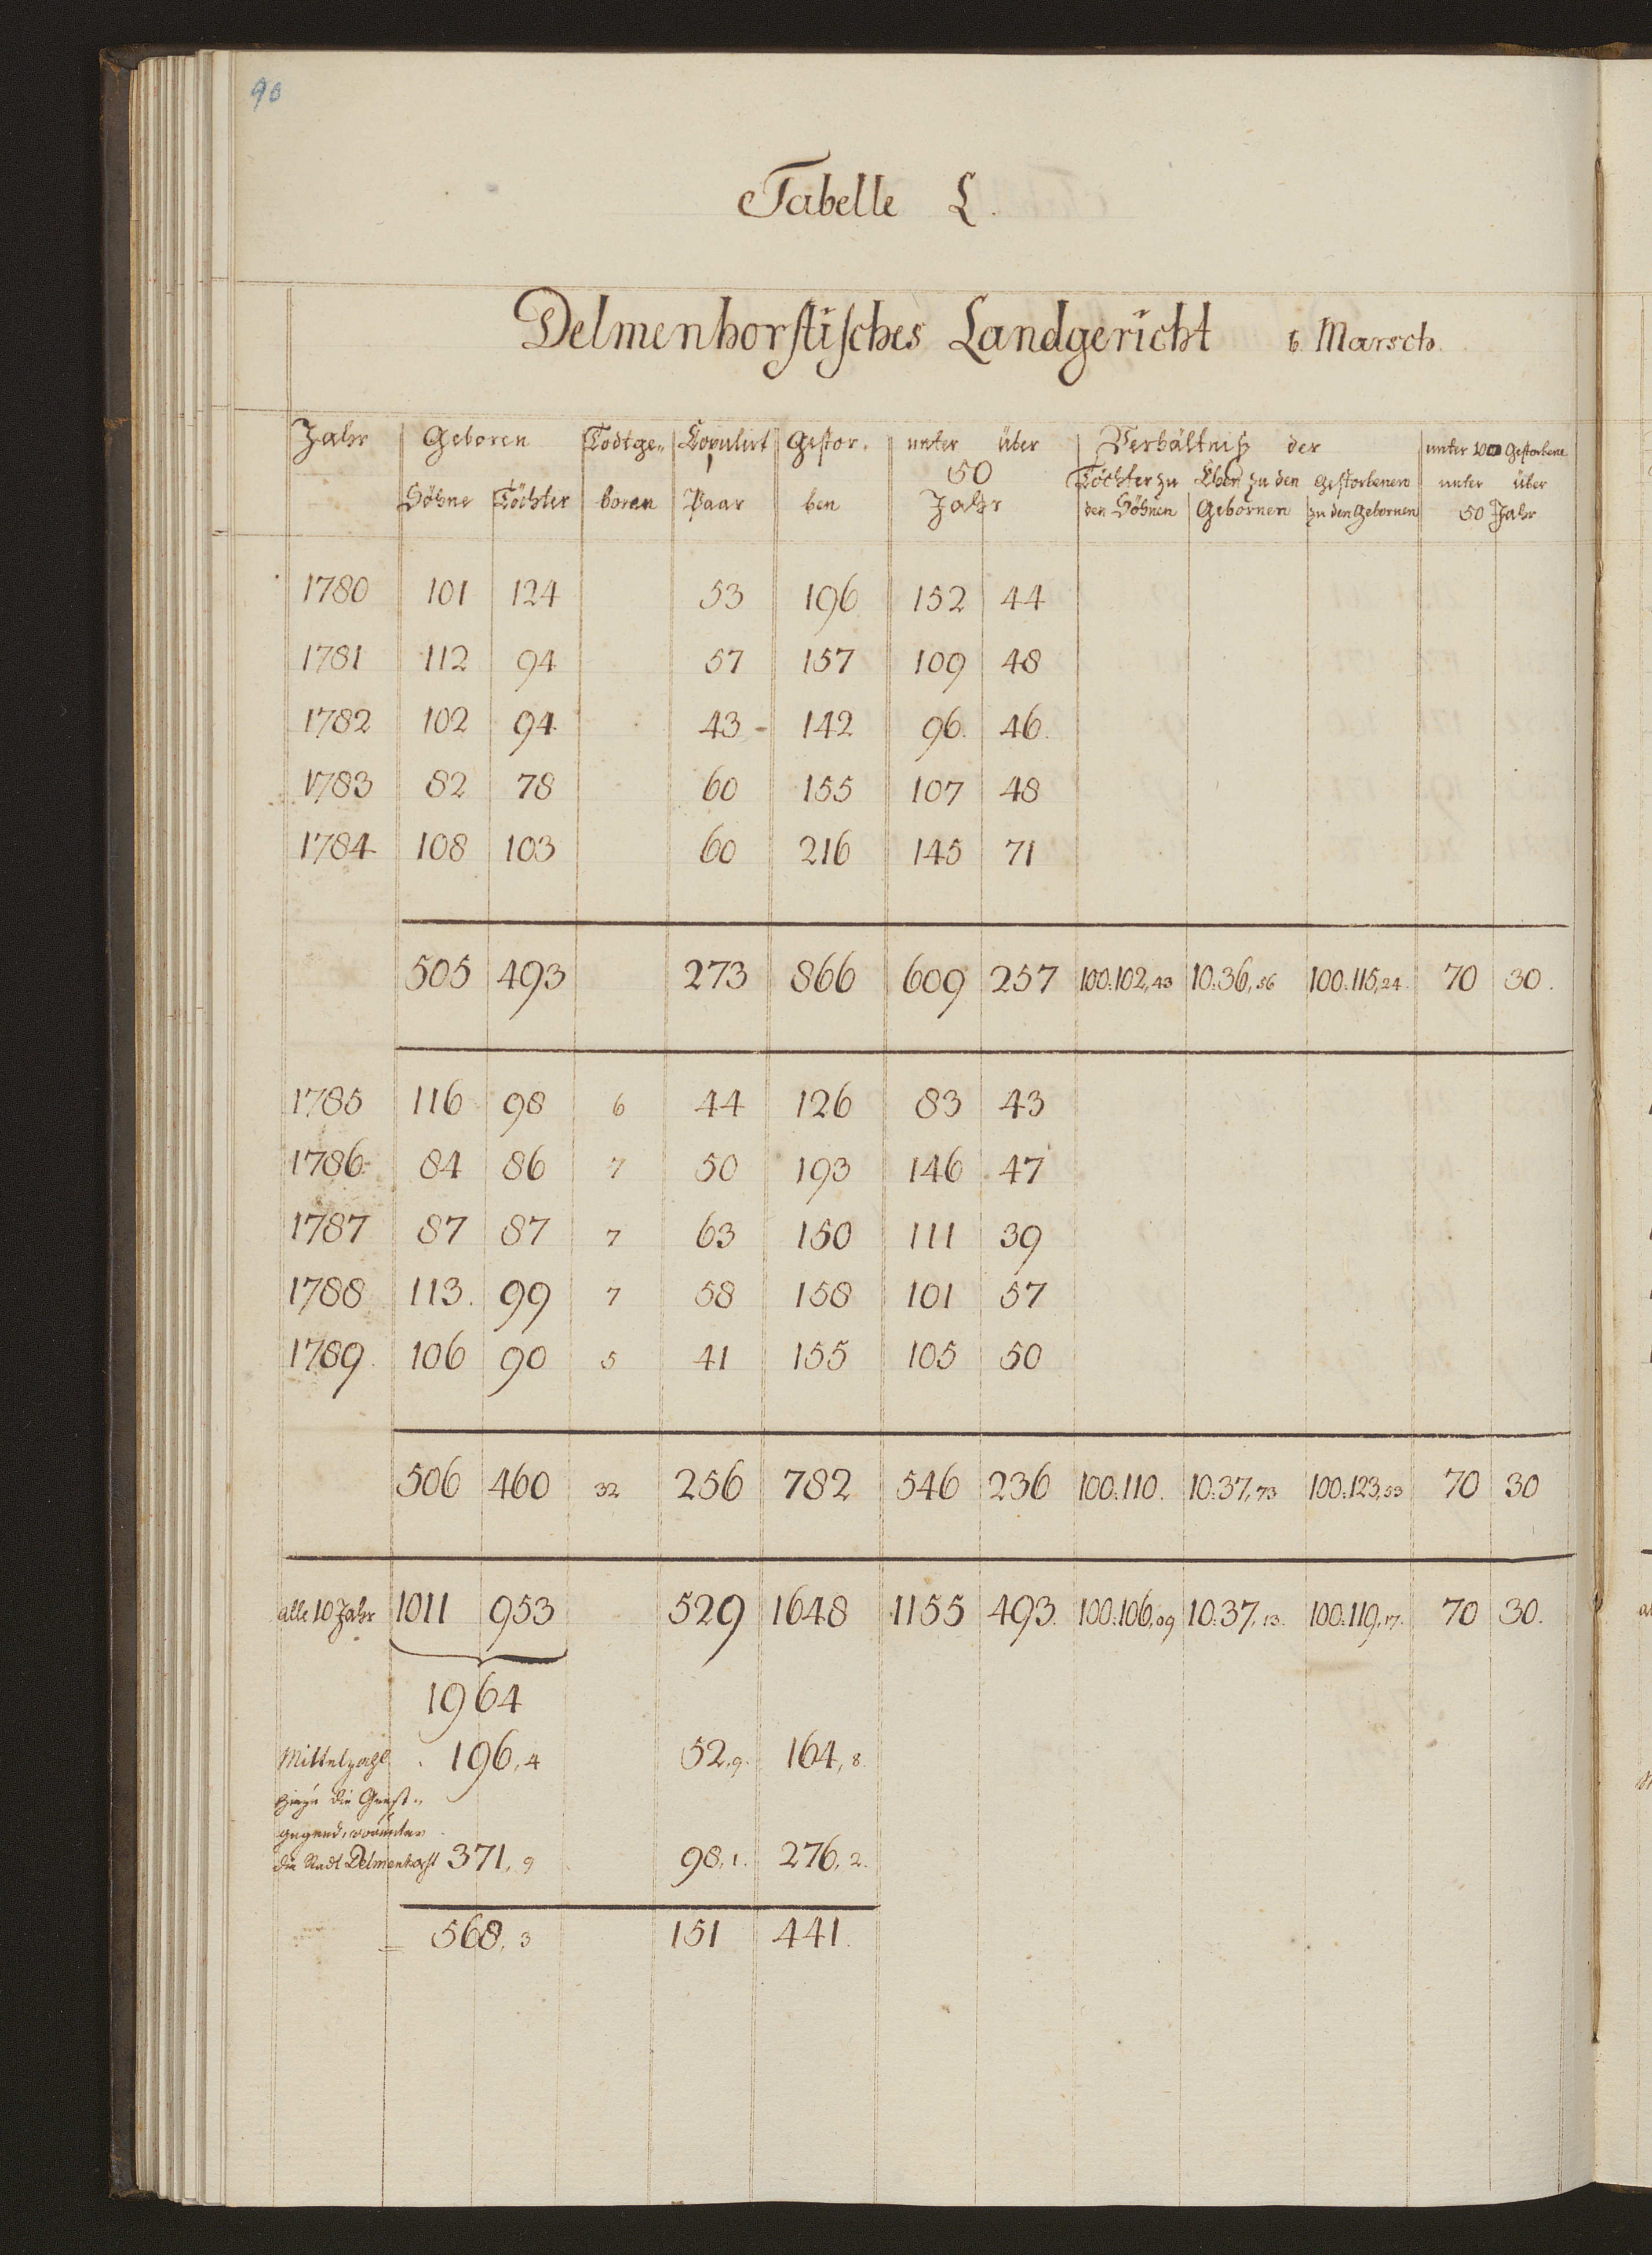 90
Tabelle L.
Delmenhorstisches Landgericht b. Marsch.
Jahr Geboren Todtge„ Kopulirt Gestor. unter über Verhältniß der unter 100 Gestorbene
50 Töchter zu Ehen zu den Gestorbenen unter über
Söhne Töchter boren Paar ben Jahr den Söhnen Gebornen zu den Gebornen 50 Jahr
1780 101 124 53 196 152 44
1781 112 94 57 157 109 48
1782 102 94 43 - 142 96. 46.
1783 82 78 60 155 107 48
1784 108 103 60 216 145 71
505 493 273 866 609 257 100:102,43 10:36,56 100:115,24. 70 30.
1785 116 98 6 44 126 83 43
1786 84 86 7 50 193 146 47
1787 87 87 7 63 150 111 39
1788 113. 99 7 58 158 101 57
1789. 106 90 5 41 155 105 50
506 460 32 256 782 546 236 100:110. 10:37,73 100:123,53 70 30
alle 10 Jahr 1011 953 529 1648 1155 493. 100:106,09 10:37,13. 100:119,17. 70 30.
1964
Mittelzahl 196,4 52,9. 164,8.
Hiezu die Geest„
gegend, worunter
die Stadt Delmenhorst 371,9 98,1. 276,2.
568,3 151 441.